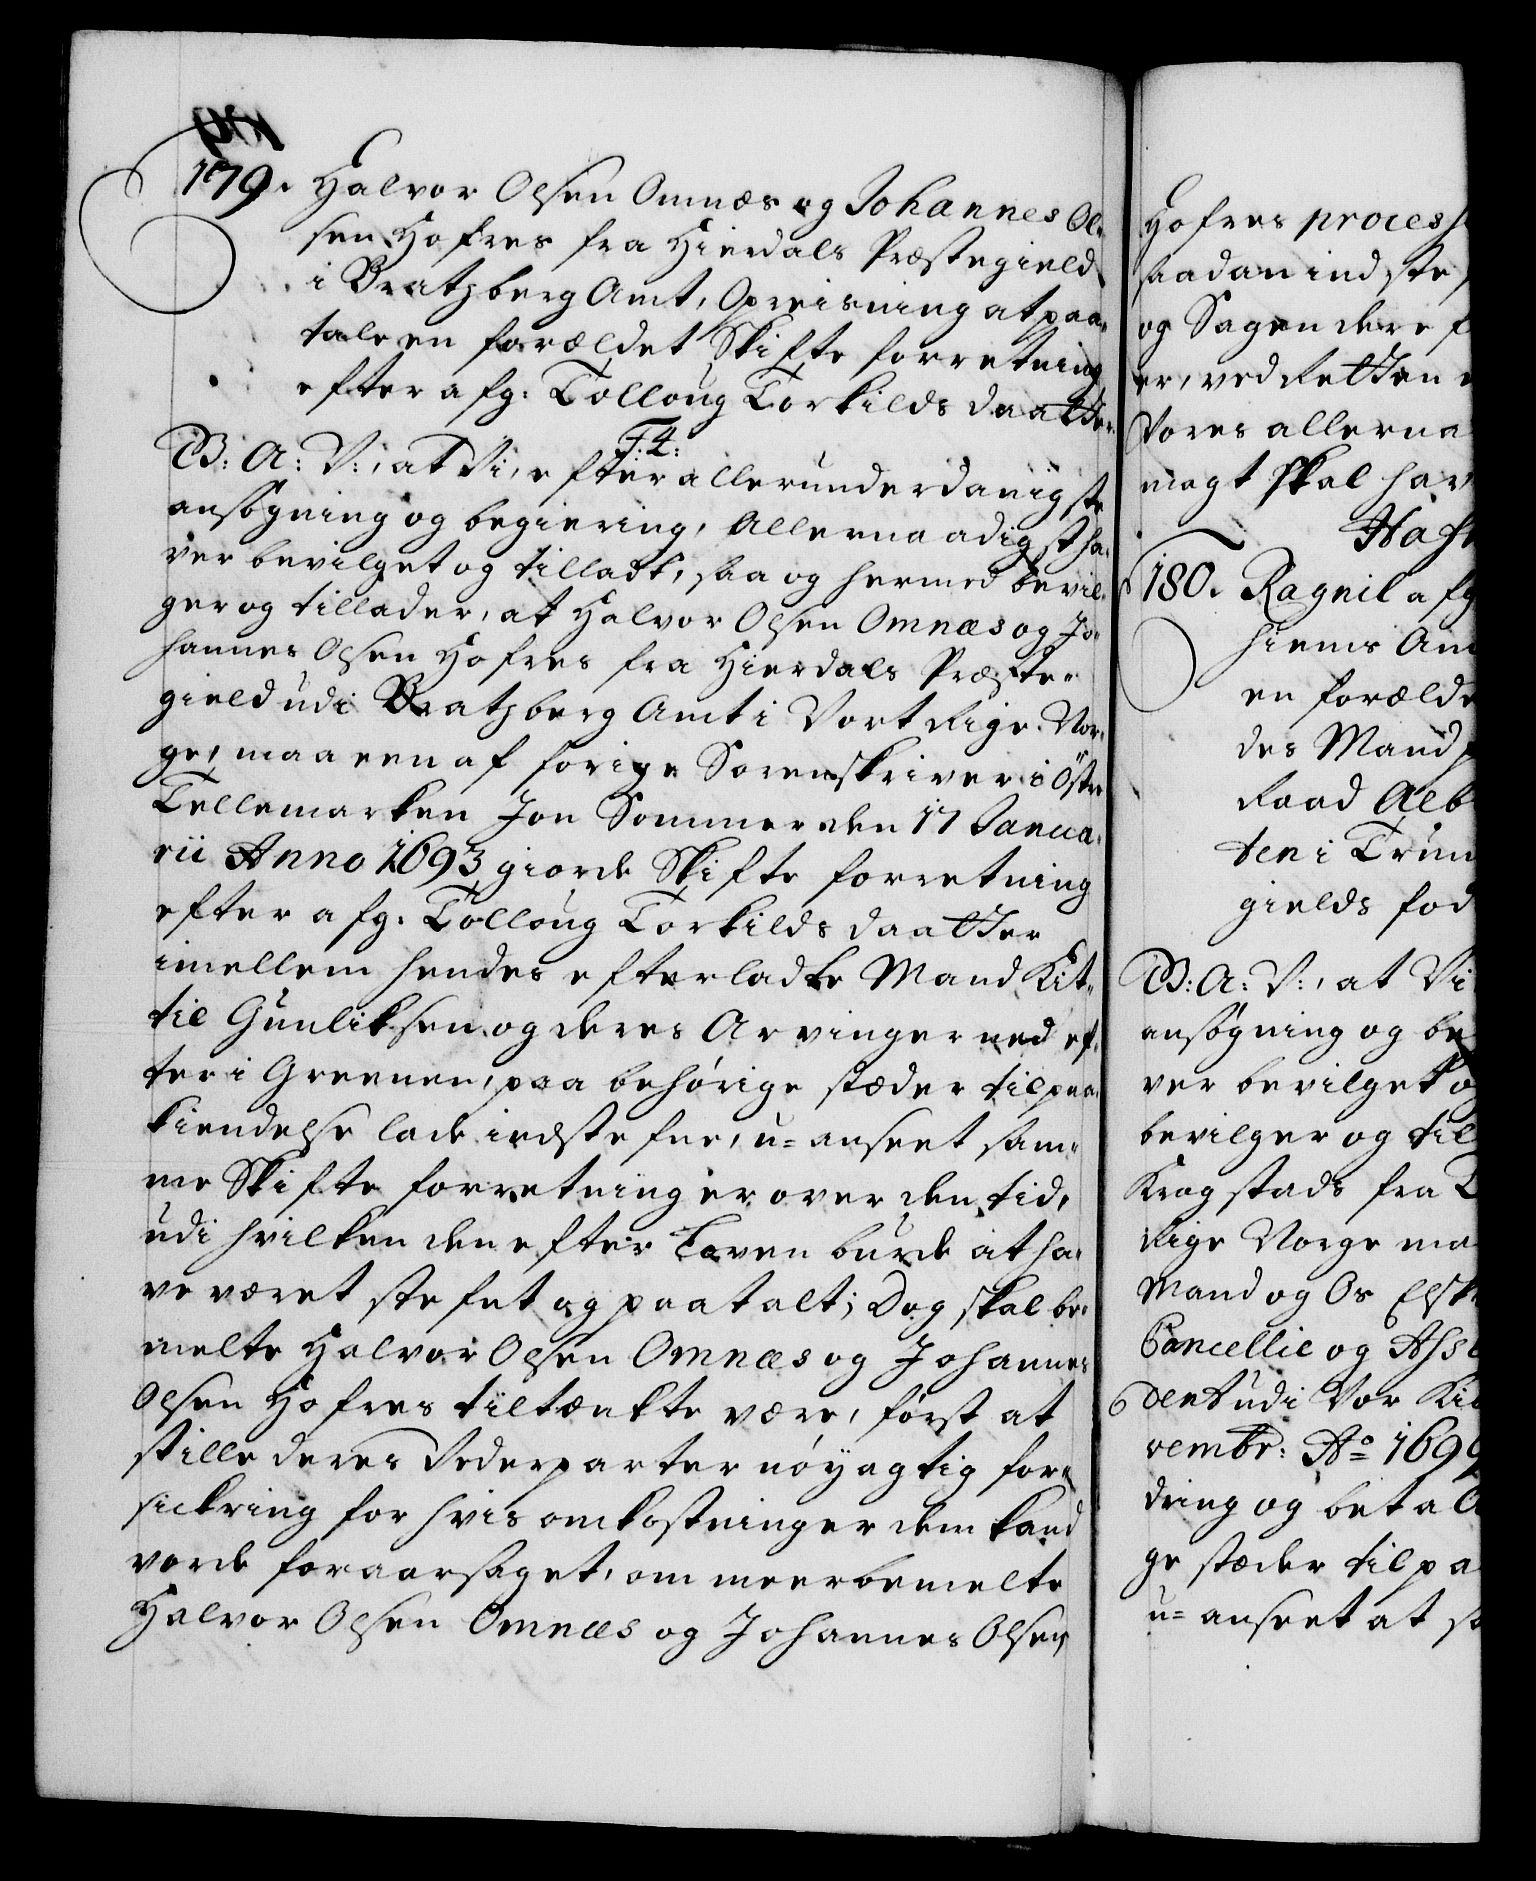 179. Halvor Olsen Omnæs og Johannes Ol-
sen Hofres fra Hierdals Præstegield
i Bratzberg Amt, Opreisning at paa-
tale en forældet Skifte forretning
efter afg: Tolloug Torkilds daatter.
F: 4:
G: A: V:, at Vi, efter allerunderdanigste
ansøgning og begiering, Allernaadigst ha-
ver bevilget og tilladt, saa og hermed bevil-
ger og tillader, at Halvor Olsen Omnæs og Jo-
hannes Olsen Hofres fra Hierdals Præste-
gield udi Bratzberg Amt i Vort Rige Nor-
ge, maa een af forige Sorenskriver i Østre
Tellemarken Jon Sommer den 17 Janua-
rii Anno 1693 giorde Skifte forretning
efter afg: Tolloug Torkilds daatter
imellem hendes efterladte Mand Kit-
til Gunliksen og deres Arvinger ned ef-
ter i Greenen, paa behørige stæder til paa-
kiendelse lade indstefne, u-anseet sam-
me Skifte forretning er over den tid,
udi hvilken den efter Loven burde at ha-
ve været stefnt og paatalt; Dog skal be-
melte Halvor Olsen Omnæs og Johannes
Olsen Hofres tiltænkte være, først at
stille deres Vederparter nøyagtig for-
sickring for hvis omkostninger dem kand
vorde foraarsaget, om meerbemelte
Halvor Olsen Omnæs og Johannes Olsen
Hofres process
saadan indste
og Sagen dere f
er, ved Retten
Vores allerna
magt skal hav
Hafn
180. Ragnil afg
hiems Am
en forælde
des Mand
Raad Alb
ten i Trun
gields fod
G: A: V:, at Vi
ansøgning og be
ver bevilget og
bevilger og til
Krogstads fra
Rige Norge ma
Mand og Os Elsk
Cancellie og Asse
dent udi Vor
vembr: Ao 1699
dring og betal
ge stæder til pa
u-anseet at sa